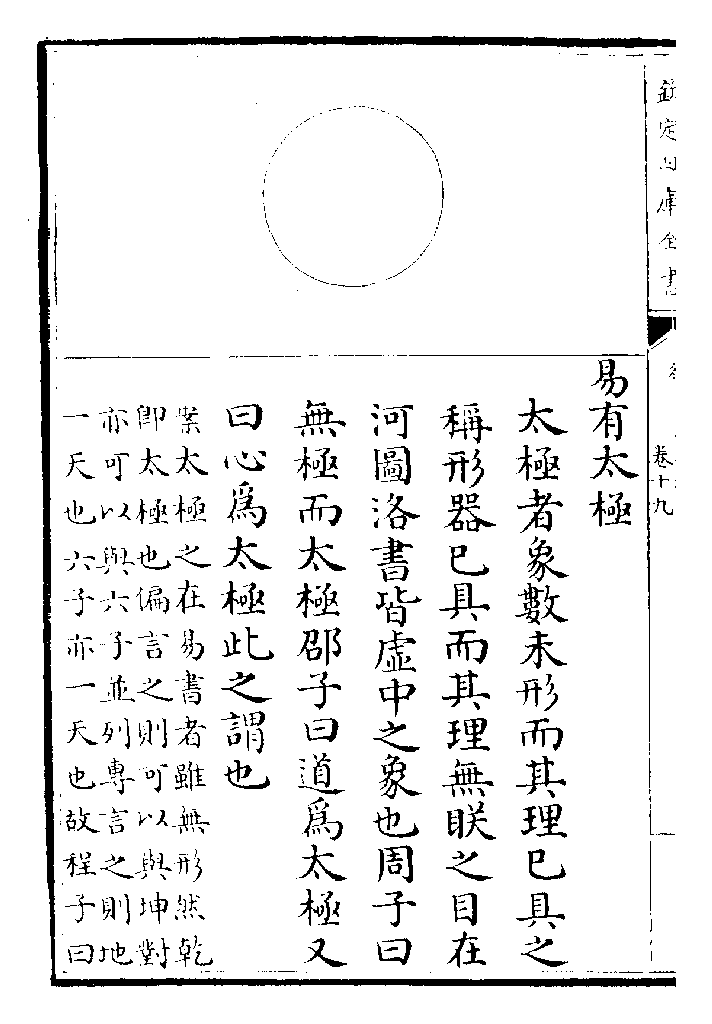 欽定四庫全書
卷十九
易有太極
太極者象數未形而其理已具之
稱形器已具而其理無朕之目在
河圖洛書皆虛中之象也周子曰
無極而太極邵子曰道爲太極又
曰心爲太極此之謂也
案太極之在易書者雖無形然乾
卽太極也偏言之則可以與坤對
亦可以與六子並列專言之則地
一天也六子亦一天也故程子曰